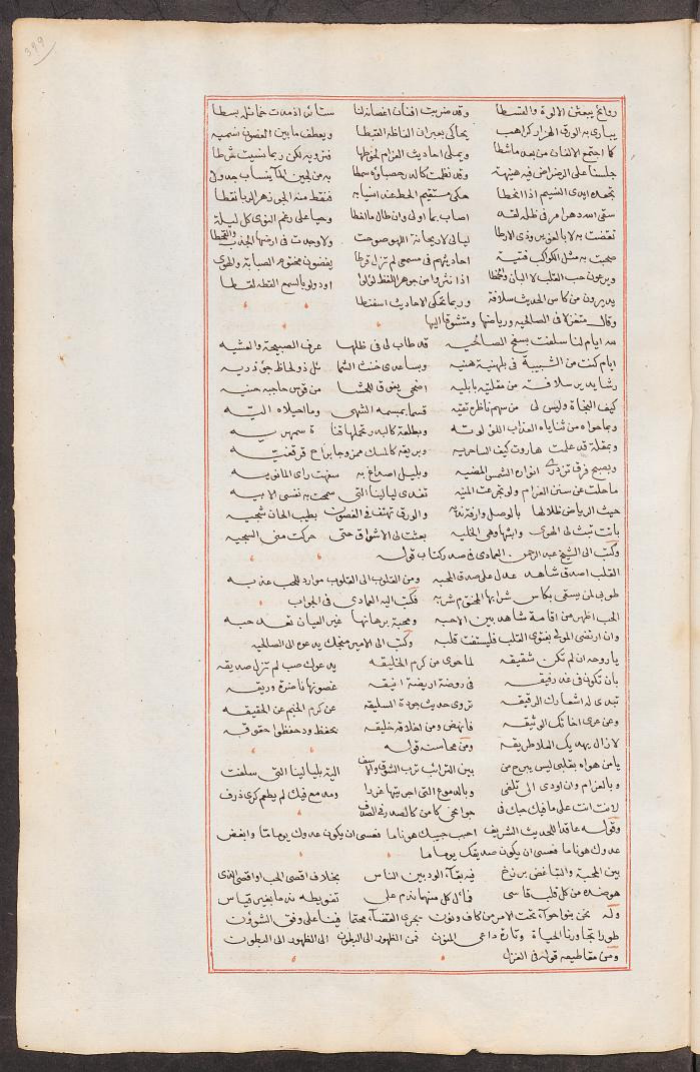 ٣٩٩
روائح يبعثن الالوة والقسطا وقد ضربت افنان اغصانه لنا ستائر اذ مدت خمائله بسطا
يبارى به الورق الهزار كراهب يحاكى بعبران الفاظه القبطا ويعطف ما بين الغصون نسميه
كما اجتمع الالفان من بعد ما شطا ويملى احاديث الغرام لحوظها فنرويه لكن ربما نسيت شرطا
جلسنا على الرضراض فيه هنيهة وقد نظمت كالدر حصباؤه سمطا به من لجين الماء ينساب جدول
تجعده ايدى النسيم اذا انحطا حكى مستقيم الخط عند انسيابه فنقط منه الجو زهر الربا نقطا
سقى الله دهرا مر فى ظله لقد اصاب بما اولى وان طال ما اخطا وحيا على رغم النوى كل ليلة
تقضت به لا بالغوير وذى الارطا ليالى لا ريحانة اللهو صوحت ولا وجدت فى ارضها الجدب والقحطا
صحبت به مثل الكواكب فتية احاديثهم فى مسمعى لم تزل قرطا يفضون مختوم الصبابة والهوى
ويرعون حب القلب لا البان والخمطا اذا نثروا من جوهر اللفظ لؤلؤا اود ولو بالسمع القطه لقطا
يديرون من كاس الحديث سلافة وربما تحكى الاحاديث اسفنطا
وقال متغزلا فى الصالحيه ورياضها ومتشوقا اليها
لله ايام لنا سلفت بسفح الصالحيه قد طاب لى فى ظلها عرف الصبيحة والعشيه
ايام كنت من الشبيبة فى بلهنية هنيه ويساعدى خنث الشمائل ذو لحاظ جؤذريه
رشا يدير سلافة من مقلتيه بابليه اضحى يفوق للحشا من قوس حاجبه حنيه
كيف النجاة وليس لى من سهم ناظره تقيه قسما بمبسمه الشهى وما احيلاه اليه
وبما حواه من ثناياه العذاب اللؤلؤيه وبطلعة كالبدر تحملها قناة سمهريه
وبمقلة قد علمت هاروت كيف الساحريه وبريقه كالمسك ممزوجا براح قرقفيه
وبصبح فرق تزدرى انواره الشمس المضيه وبليل اصداغ به سفهت راى المانويه
ما حلت عن سنن الغرام ولو تجرعت المنيه تفدى ليالينا التى سمحت به نفسى الابيه
حيث الرياض ظلالها بالوصل وارفة نديه والورق تهتف فى الغصون بطيب الحان شجيه
باتت تبث لى الهوى وابثها وهى الخليه بعثت لى الاشواق حتى حركت منى السجيه
وكتب الى الشيخ عبد الرحمن العمادى فى صدر كتاب قوله
القلب اصدق شاهد عدل على صدق المحبه ومن القلوب الى القلوب موارد للحب عذبه
طوبى لمن يسقى بكاس شرابها المختوم شربه فكتب اليه العمادى فى الجواب
الحب اظهر من اقامة شاهد بين الاحبه ومحبة برهانها غير العيان تعد حبه
وان ارتضى المولى بفتوى القلب فليستفت قلبه وكتب الى الامير منجك يدعوه الى الصالحيه
يا روحه ان لم تكن شقيقه لما حوى من كرم الخليقه يدعوك صب لم تزل صديقه
بان تكون فى غد رفيقه فى روضة اريضة انيقه غصونها ناضرة وريقه
تبدى له اشعارك الرقيقه تروى حديث جودة السليقه عن كرم الخيم عن الحقيقه
وعن عرى اخائك الوثيقه فانهض ومن اخلاقه خليقه بحفظ ود حفظوا حقوقه
لا زال يهديك العلا طريقه ومن محاسنه قوله
يا من هواه بقلبى ليس يبرح من بين الترائب ترب الشوق والاسف الية بليالينا التى سلفت
وبالغرام وان اودى الى تلفى وبالدموع التى اجريتها غدرا ومدمع فيك لم يطعم كرى ذرف
لانت انت على ما فيك حبك فى جوانحى كامن كالدر فى الصدف
وقوله عاقدا للحديث الشريف احبب حبيبك هونا ما فعسى ان يكون عدوك يوما ما وابغض
عدوك هونا ما فعسى ان يكون صديقك يوما ما
بين المحبة والتباغض برزخ فيه بقاء الود بين الناس بخلاف اقصى الحب او اقصى الذى
هو ضده من كل قلب قاسى فمآل كل منهما ندم على تفريطه ندما بغير قياس
وله نحن بنوا حواء تحت الامر من كاف ونون يجرى القضاء محتما فينا على وفق الشؤون
طورا تجاورنا الحياة وتارة داعى المنون فمن الظهور الى البطون الى الظهور الى البطون
ومن مقاطيعه قوله فى الغزل